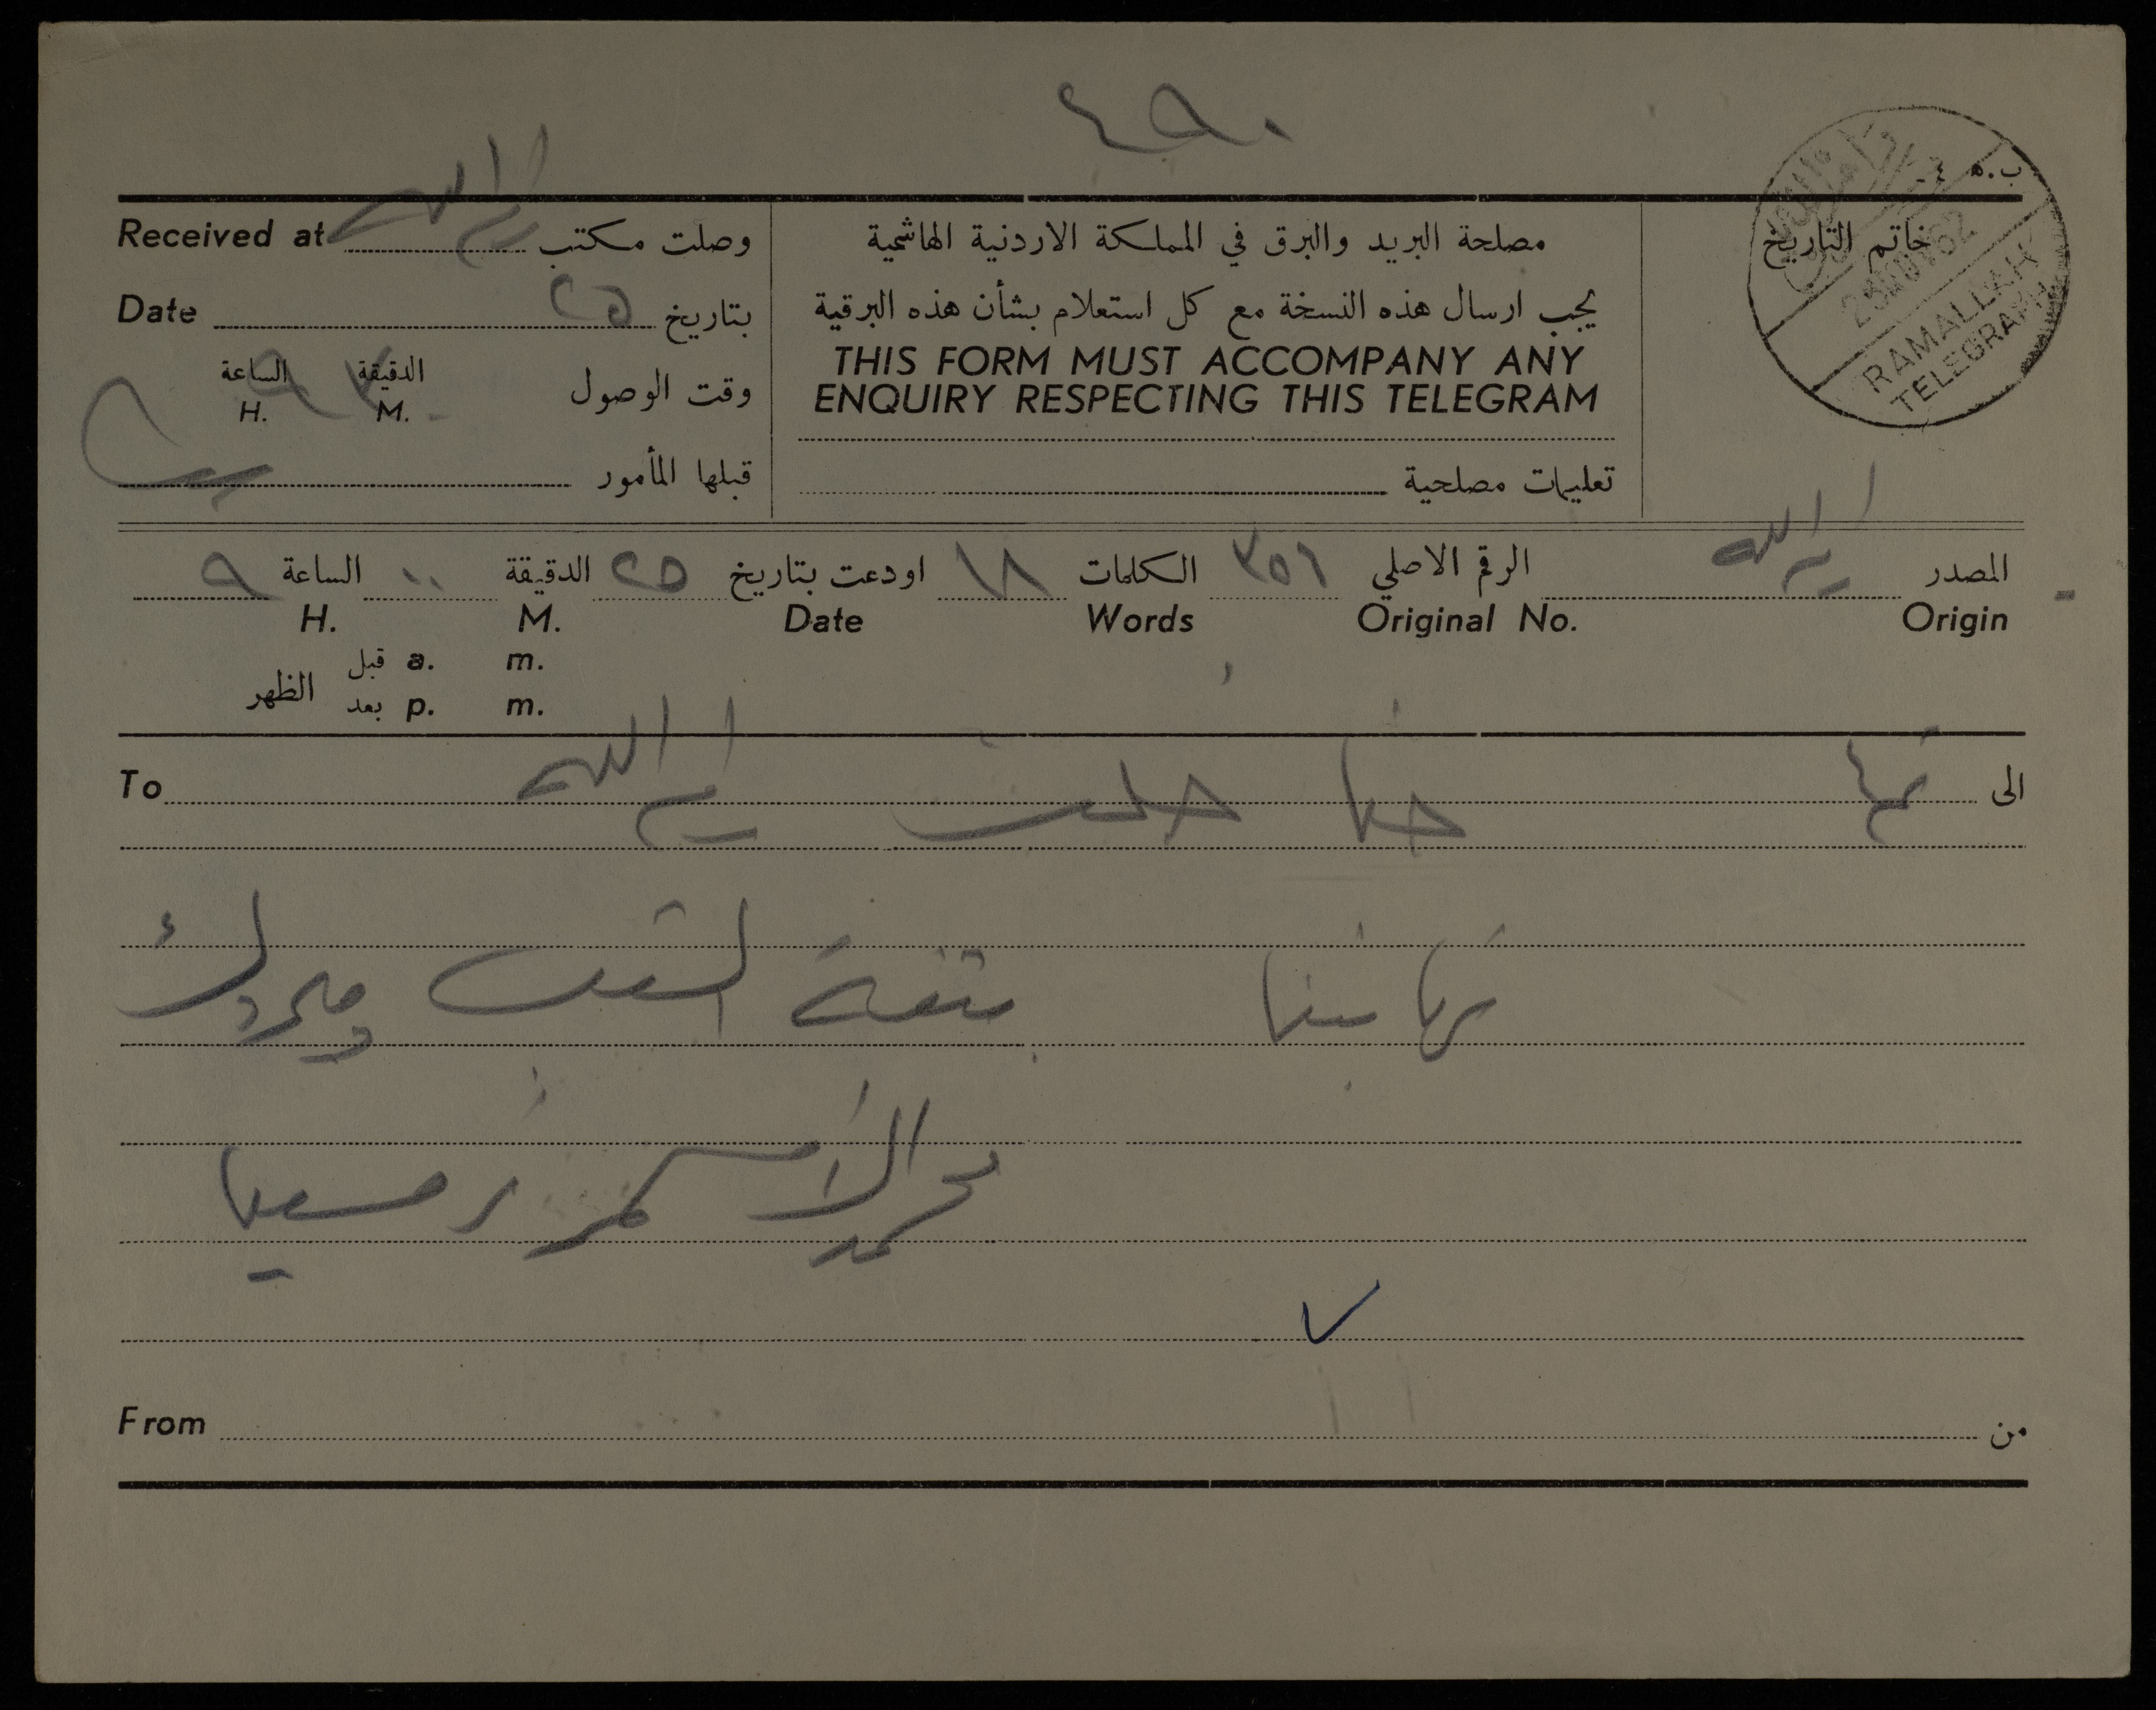 ٤٩٠
ب.ه ٤٠
خاتم التاريخ
رام الله
25 NOV 62
RAMALLAH
TELEGRAPH
مصلحة البريد والبرق في المملكة الاردنية الهاشمية
يجب ارسال هذه النسخة مع كل استعلام بشأن هذه البرقية
THIS FORM MUST ACCOMPANY ANY
ENQUIRY RESPECTING THIS TELEGRAM
تعليمات مصلحية
وصلت مكتب رام الله Received at
بتاريخ ٢٥ Date
وقت الوصول الدقيقة ٣٠ الساعة ٩
M. H.
قبلها المأمور
المصدر رام الله الرقم الاصلي ٣٥٦ الكلمات ١٨ اودعت بتاريخ ٢٥ الدقيقة ٠٠ الساعة ٩
Origin Original No. Words Date M. H.
قبل a. m.
الظهر
بعد p. m.
الى حنا خلف رام الله To
تهانينا بثقة الشعب
محمد الأسمر
من From